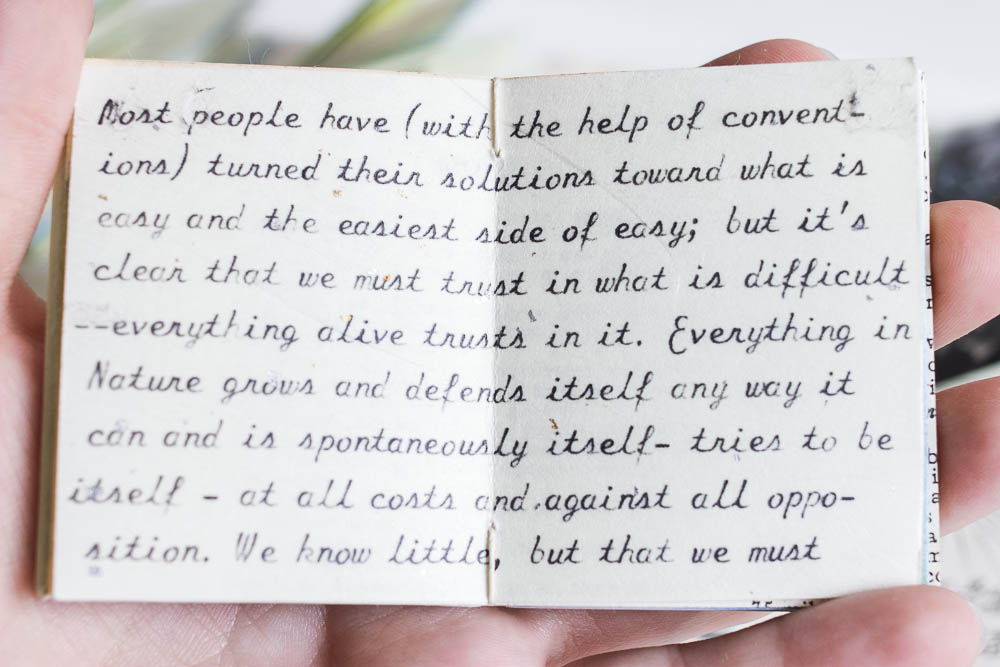 Most people have (with the help of convent-
ions) turned their solutions toward what is
easy and the easiest side of easy; but it's
clear that we must trust in what is difficult
--everything alive trusts in it. Everything in
Nature grows and defends itself any way it
can and is spontaneously itself- tries to be
itself - at all costs and against all oppo-
sition. We know little, but that we must